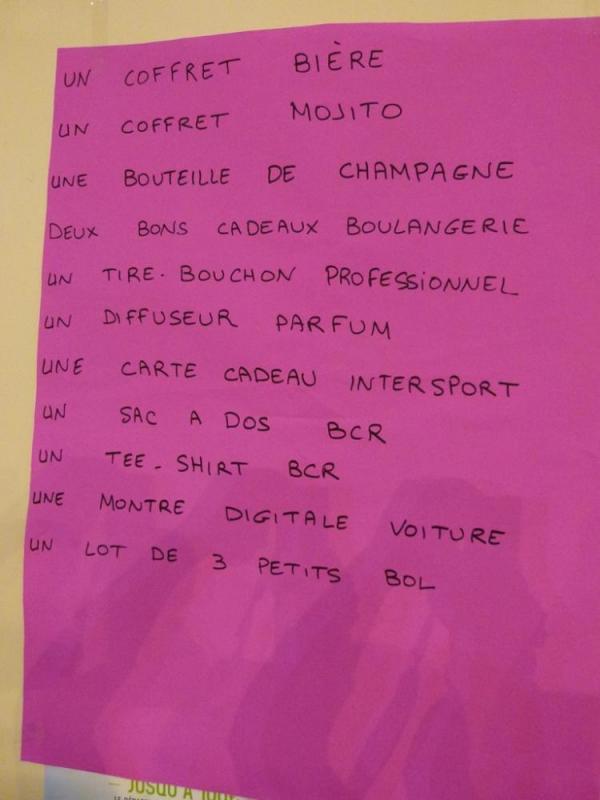 UN COFFRET BIÈRE
UN COFFRET MOJITO
UNE BOUTEILLE DE CHAMPAGNE
DEUX BONS CADEAUX BOULANGERIE
UN TIRE-BOUCHON PROFESSIONNEL
UN DIFFUSEUR PARFUM
UNE CARTE CADEAU INTERSPORT
UN SAC A DOS BCR
UN TEE-SHIRT BCR
UNE MONTRE DIGITALE VOITURE
UN LOT DE 3 PETITS BOL
JUSQU'À